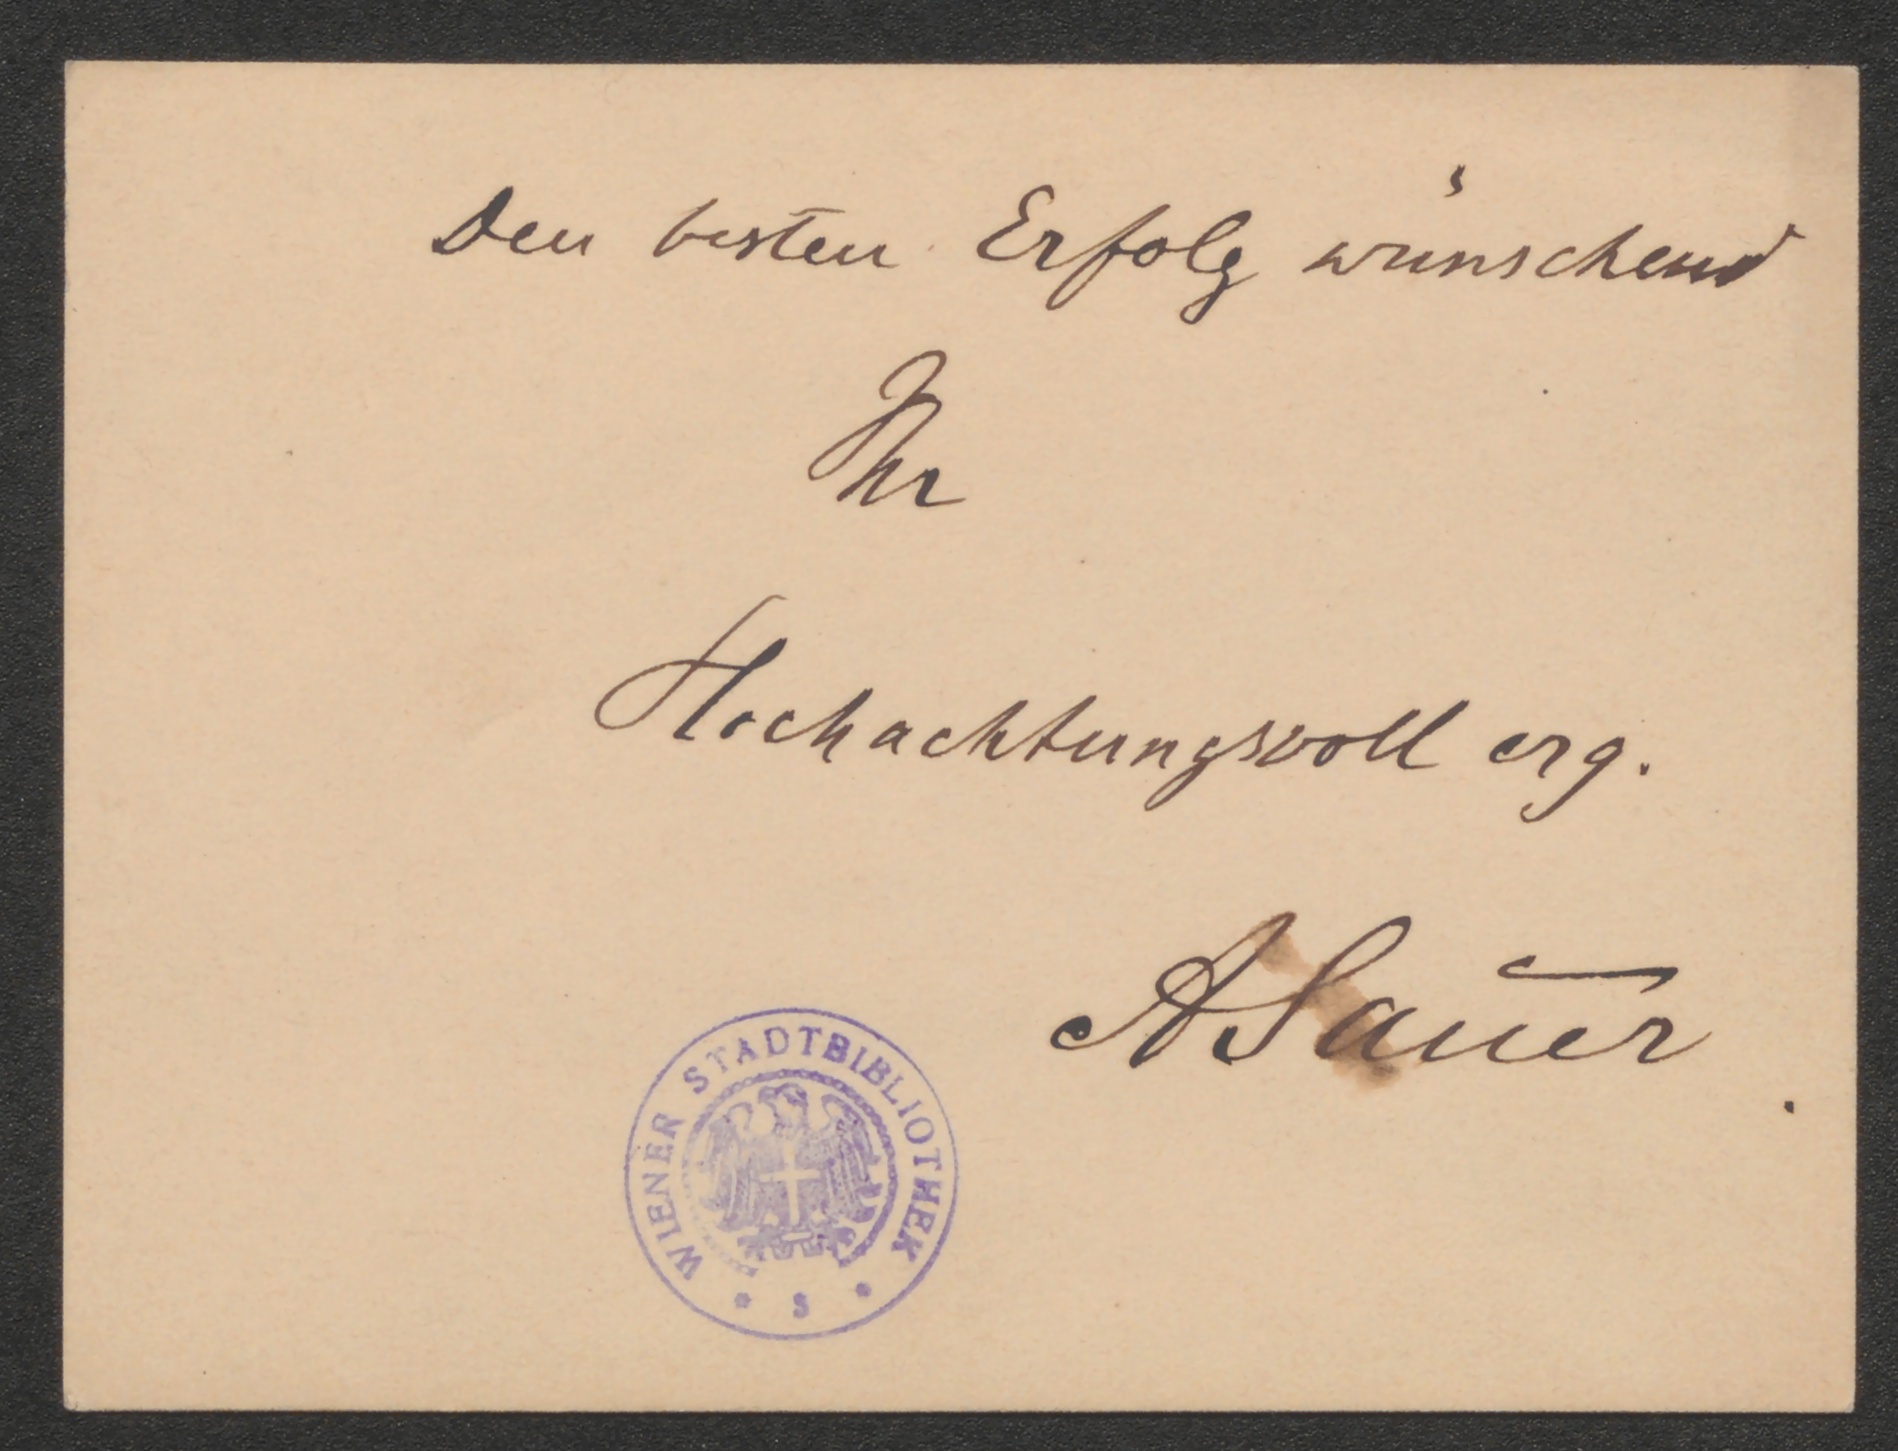 Den besten Erfolg wünschend
Ihr
Hochachtungsvoll erg.
ASauer
WIENER STADTBIBLIOTHEK
* S *